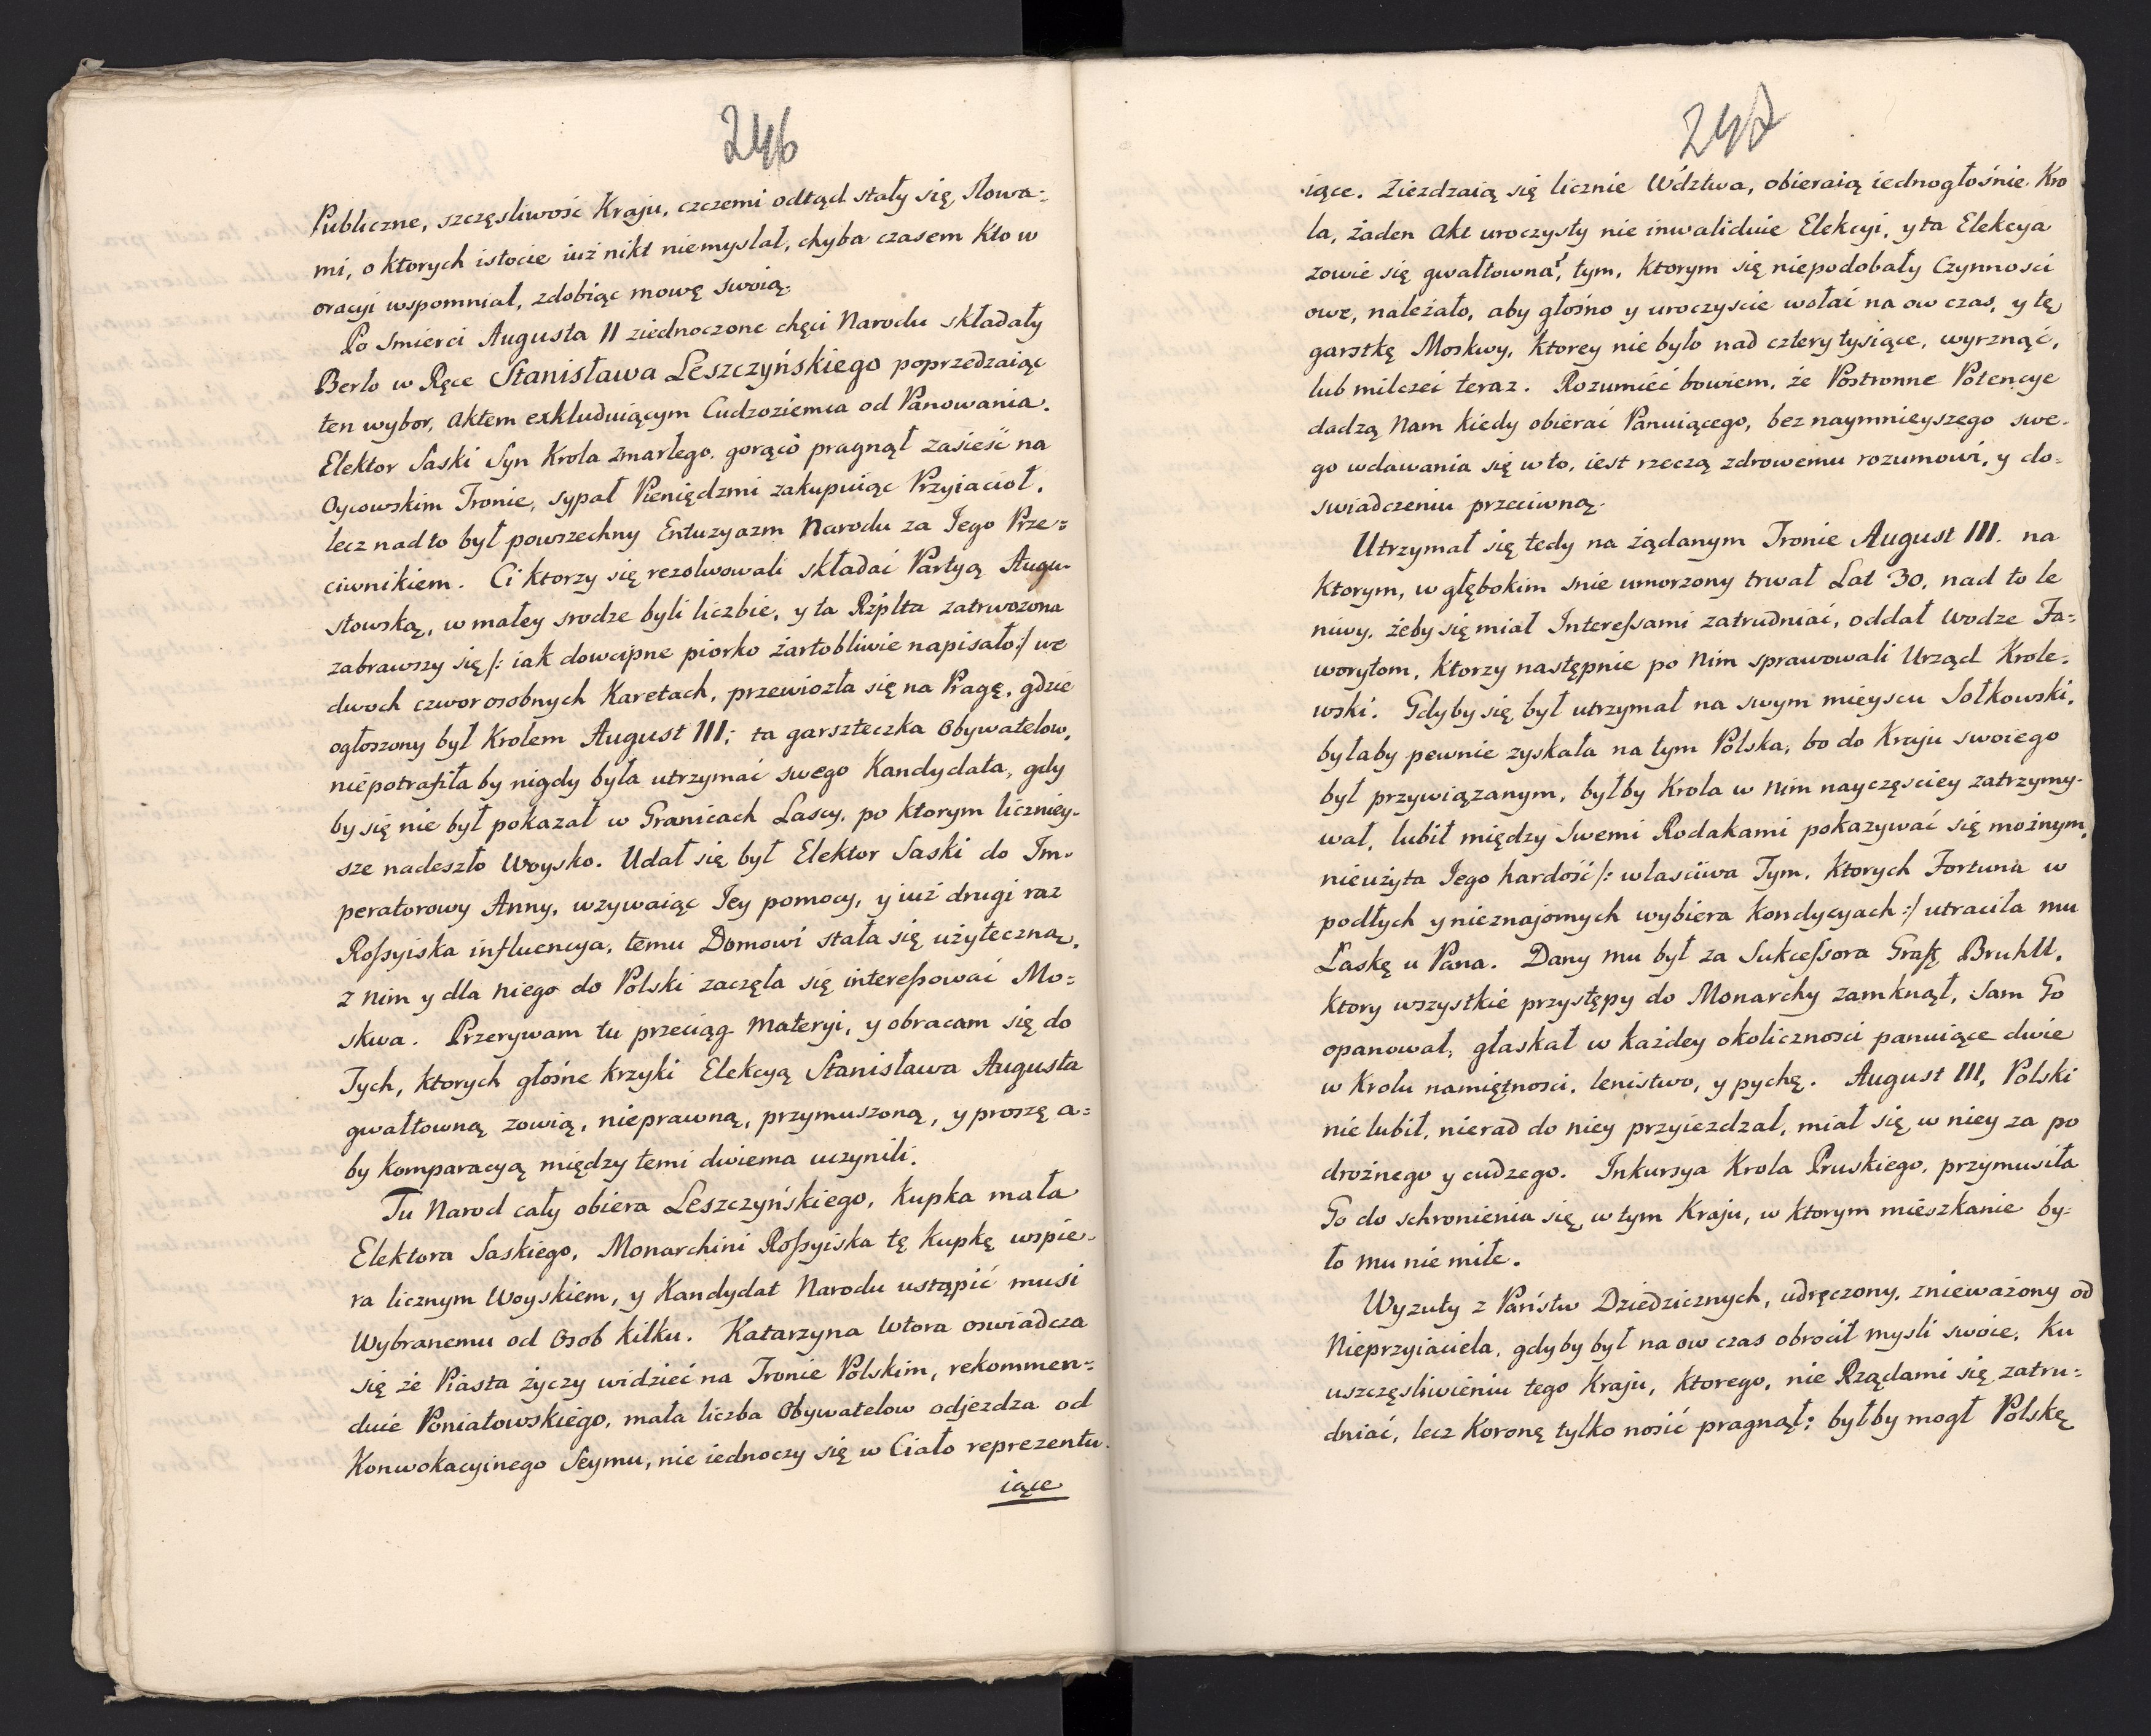 246
Publiczne, szczęsliwość Kraju, czczemi odtąd stały się Słowa=
mi, o ktorych istocie iuż nikt niemyslał, chyba czasem Kto w
oracyi wspomniał, zdobiąc mowę swoią.
Po Smierci Augusta II ziednoczone chęci Narodu składały
Berło w Ręce Stanisława Leszczyńskiego poprzedzaiąc
ten wybor, Aktem exkluduiącym Cudzoziemca od Panowania.
Elektor Saski Syn Krola zmarłego, gorąco pragnął zasieść na
Oycowskim Tronie, sypał Pieniędzmi zakupuiąc Przyiacioł,
lecz nadto był powszechny Entuzyazm Narodu za Jego Prze=
ciwnikiem. Ci ktorzy się rezolwowali składać Partyą Augu-
stowską, w małey srodze byli liczbie, y ta Rzplta zatrwożona
zabrawszy się /: iak dowcipne piorko żartobliwie napisało :/ we
dwoch czworosobnych Karetach, przewiozła się na Pragę, gdzie
ogłoszony był Krolem August III; ta garszteczka Obywatelow,
niepotrafiła by nigdy była utrzymać swego Kandydata, gdy
by się nie był pokazał w Granicach Lascy, po ktorym liczniey-
sze nadeszło Woysko. Udał się był Elektor Saski do Im-
peratorowy Anny, wzywaiąc Jey pomocy, y iuż drugi raz
Roſsyiska influencya, temu Domowi stała się użyteczną,
z nim y dla niego do Polski zaczęła się intereſsować Mo=
skwa. Przerywam tu przeciąg Materyi, y obracam się do
Tych, ktorych głośne krzyki Elekcyą Stanisława Augusta
gwałtowną zowią, nieprawną, przymuszoną, y proszę a=
by komparacyą między temi dwiema uczynili.
Tu Narod cały obiera Leszczyńskiego, Kupka mała
Elektora Saskiego, Monarchini Roſsyiska tę kupkę wspie-
ra licznym Woyskiem, y Kandydat Narodu ustąpić musi
Wybranemu od Osob kilku. Katarzyna Wtora oswiadcza
się że Piasta życzy widzieć na Tronie Polskim, rekommen=
duie Poniatowskiego, mała liczba Obywatelow odjezdza od
Konwokacyinego Seymu, nie iednoczy się w Ciało reprezentu-
iące
247
iące. Ziezdzaią się licznie Wdztwa, obieraią iednogłośnie Kro
la, żaden Akt uroczysty nie inwaliduie Elekcyi, y ta Elekcya
zowie się gwałtowna?, tym, ktorym się niepodobały Czynnosci
owe, należało, aby głośno y uroczyscie wołać na ow czas, y tę
garstkę Moskwy, ktorey nie było nad cztery tysiące, wyrznąć,
lub milczeć teraz. Rozumieć bowiem, że Postronne Potencye
dadzą Nam kiedy obierać Panuiącego, bez naymnieyszego swe-
go wdawania się w to, iest rzeczą zdrowemu rozumowi, y do=
swiadczeniu przeciwną.
Utrzymał się tedy na żądanym Tronie August III. na
ktorym, w głębokim snie umorzony trwał Lat 30, nad to le
niwy, żeby się miał Intereſsami zatrudniać, oddał Wodze Fa=
worytom, ktorzy następnie po Nim sprawowali Urząd Krole=
wski. Gdyby się był utrzymał na swym mieyscu Sołkowski,
byłaby pewnie zyskała na tym Polska, bo do Kraju swoiego
był przywiązanym, byłby Krola w Nim nayczęsciey zatrzymy-
wał, lubił między Swemi Rodakami pokazywać się możnym,
nieużyta Jego hardość /: własciwa Tym, ktorych Fortuna w
podłych y nieznajomych wybiera kondycyach :/ utraciła mu
Laskę u Pana. Dany mu był za Sukceſsora Graff Bruhll,
ktory wszystkie przystępy do Monarchy zamknął, Sam Go
opanował, głaskał w każdey okoliczności panuiące dwie
w Krolu namiętnosci, lenistwo, y pychę. August III, Polski
nie lubił, nierad do niey przyiezdzał, miał się w niey za po
drożnego y cudzego. Inkursya Krola Pruskiego, przymusiła
Go do schronienia się w tym Kraju, w ktorym mieszkanie by=
ło mu nie miłe.
Wyzuty z Państw Dziedzicznych, udręczony, znieważony od
Nieprzyiaciela, gdyby był na ow czas obrocił mysli swoie, Ku
uszczęsliwieniu tego Kraju, ktorego, nie Rządami się zatru=
dniać, lecz Koronę tylko nosić pragnął; byłby mogł Polskę